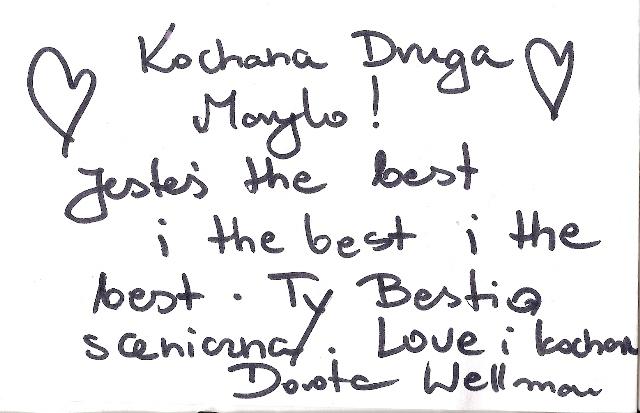 Kochana Druga
Marylo!
Jesteś the best
i the best i the
best. Ty Bestio
sceniczna!. Love i kocham
Dorota Wellman